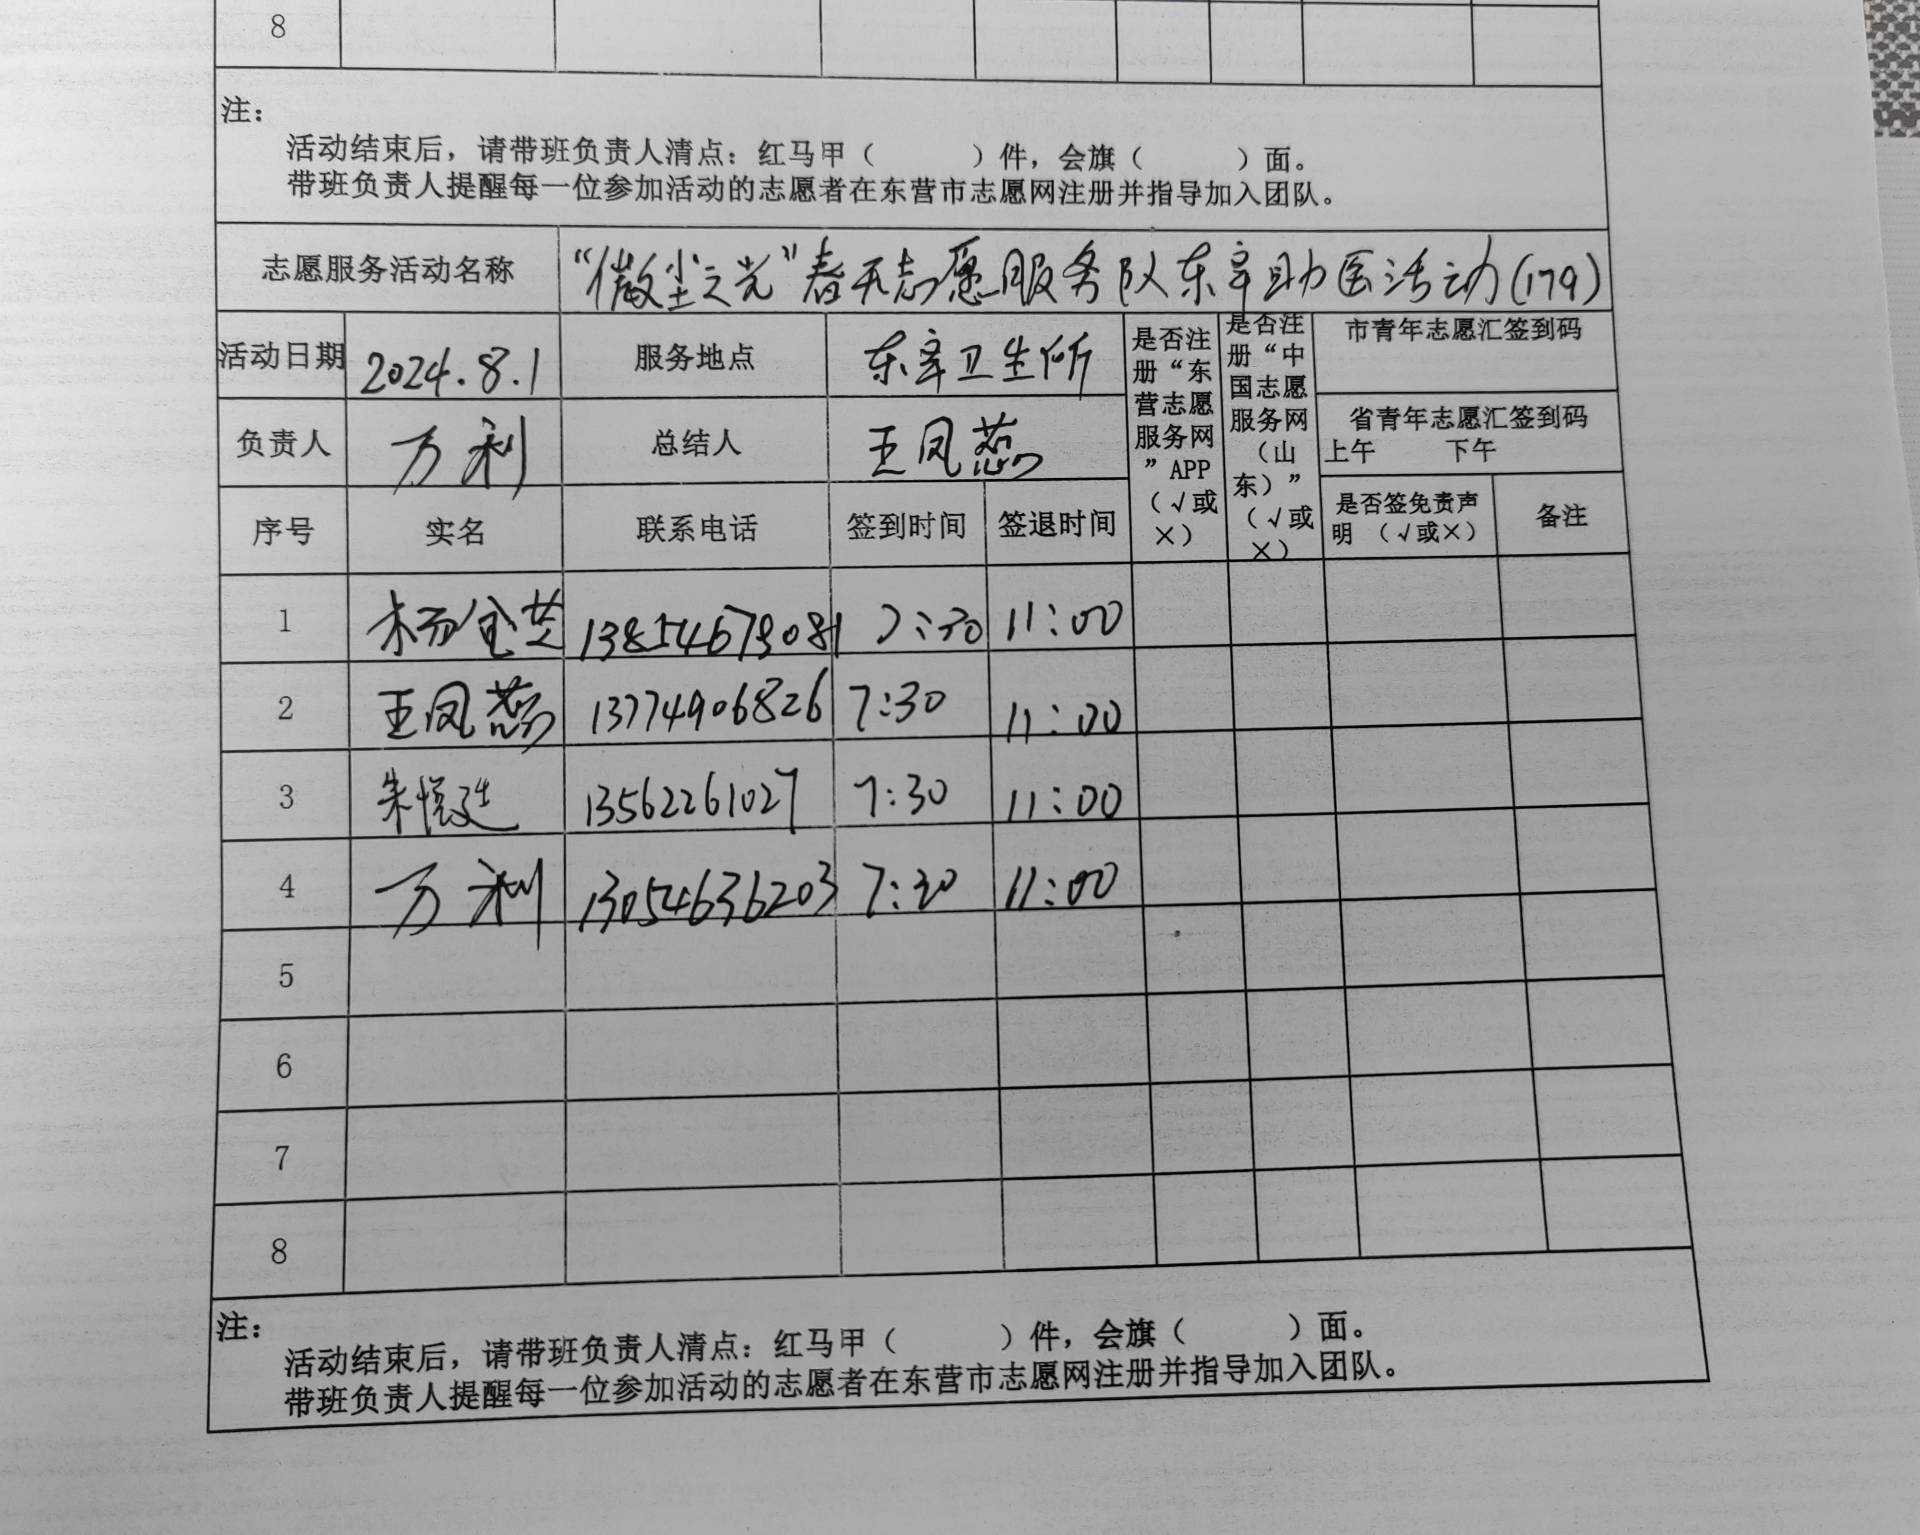 8
注：
活动结束后，请带班负责人清点：红马甲（ ）件，会旗（ ）面。
带班负责人提醒每一位参加活动的志愿者在东营市志愿网注册并指导加入团队。
志愿服务活动名称 “微尘之光”春天志愿服务队东辛助医活动(179)
活动日期 2024.8.1 服务地点 东辛卫生所 是否注册“东营志愿服务网”APP（√或×） 是否注册“中国志愿服务网（山东）”（√或×） 市青年志愿汇签到码
负责人 万利 总结人 王凤蕊 省青年志愿汇签到码
上午 下午
序号 实名 联系电话 签到时间 签退时间 是否签免责声明（√或×） 备注
1 杨金芝 13854679081 7:30 11:00
2 王凤蕊 13774906826 7:30 11:00
3 朱 13562261027 7:30 11:00
4 万利 13054636203 7:30 11:00
5
6
7
8
注：
活动结束后，请带班负责人清点：红马甲（ ）件，会旗（ ）面。
带班负责人提醒每一位参加活动的志愿者在东营市志愿网注册并指导加入团队。